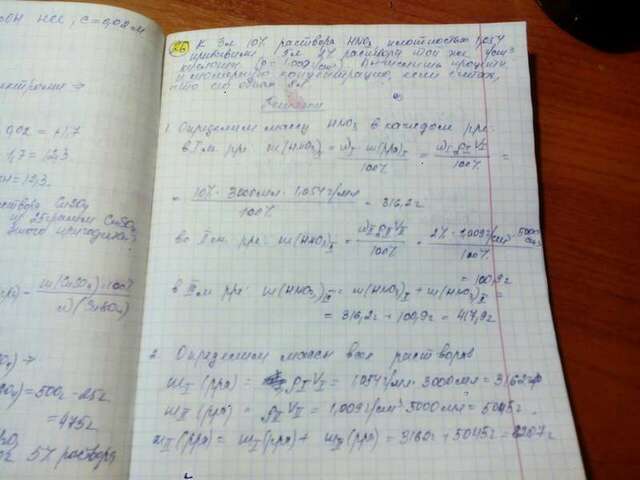 с = 0,02 м
0,02 = +1,7
1,7 = 12,3
= 12,3
CuSO₄
и 25 грамм CuSO₄
m(CuSO₄)·100%
= 500г - 25г
= 475г
5% раствора
26 К 3л 10% раствора HNO₃ плотностью 1,054 г/см³
прибавили 5л 2% раствора той же
кислоты (ρ = 1,009 г/см³). Вычислить процентн.
и молярную концентрацию, если считать,
что его объем 8л
Решение
1. Определяем массу HNO₃ в каждом р-ре:
в I-м р-ре m(HNO₃)I = ωI · m(р-ра)I / 100% = ωI ρI VI / 100% =
= 10% · 3000мл · 1,054 г/мл / 100% = 316,2г
во II-ом р-ре: m(HNO₃)II = ωII ρII VII / 100% = 2% · 1,009г/см³ · 5000 / 100%
= 100,9г
в III-м р-ре: m(HNO₃)III = m(HNO₃)I + m(HNO₃)II =
= 316,2г + 100,9г = 417,9г
2. Определяем массы всех растворов
mI (р-ра) = ρI VI = 1,054г/мл · 3000мл = 3162г
mII (р-ра) = ρII VII = 1,009г/см³ 5000мл = 5045г
(р-ра) = mI (р-ра) + mII (р-ра) = 3162г + 5045г = 8207г